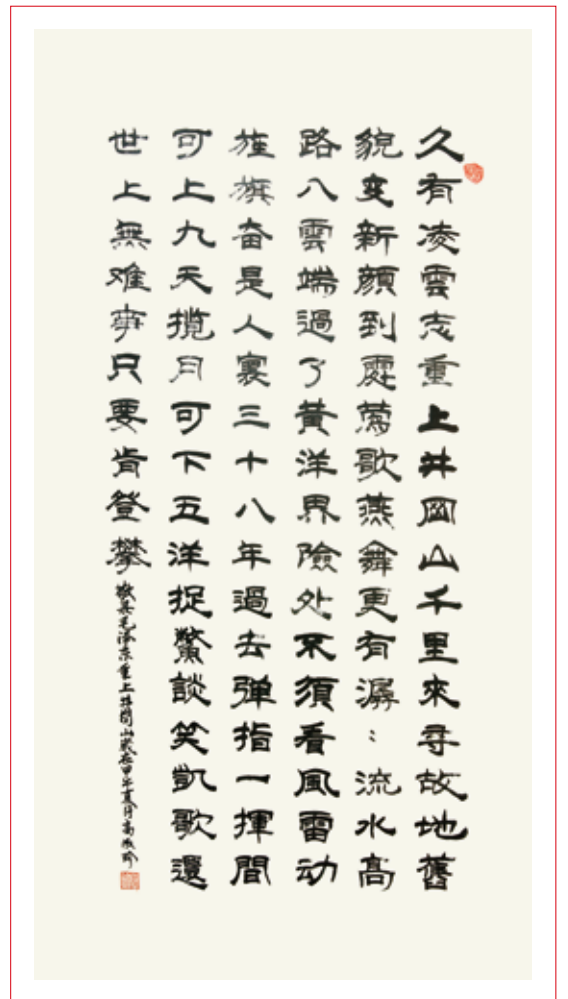 久有凌雲志重上井岡山千里來尋故地舊
貌变新顔到處莺歌燕舞更有潺：流水髙
路入雲端過了黃洋界險处不須看風雷动
旌旗奋是人寰三十八年過去弹指一揮間
可上九天揽月可下五洋捉鱉談笑凱歌還
世上無难事只要肯登攀
毛泽东重上井岡山歲在甲午夏月高